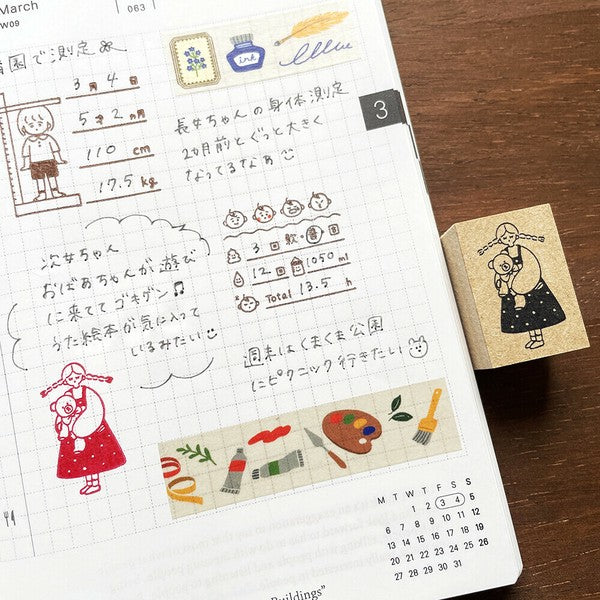 March
W09
063
園で測定
3月4日
5才2ヵ月
110 cm
17.5 kg
ink
長女ちゃんの身体測定
2ヵ月前とぐっと大きく
なってるなぁ
3
3回 軟・普・固
12回 1050 ml
Total 13.5 h
次女ちゃん
おばあちゃんが遊び
に来ててゴキゲン♫
うた絵本が気に入って
いるみたい
週末はくまくま公園
にピクニック行きたい
M T W T F S S
1 2 3 4 5
6 7 8 9 10 11 12
13 14 15 16 17 18 19
20 21 22 23 24 25 26
27 28 29 30 31
Buildings"